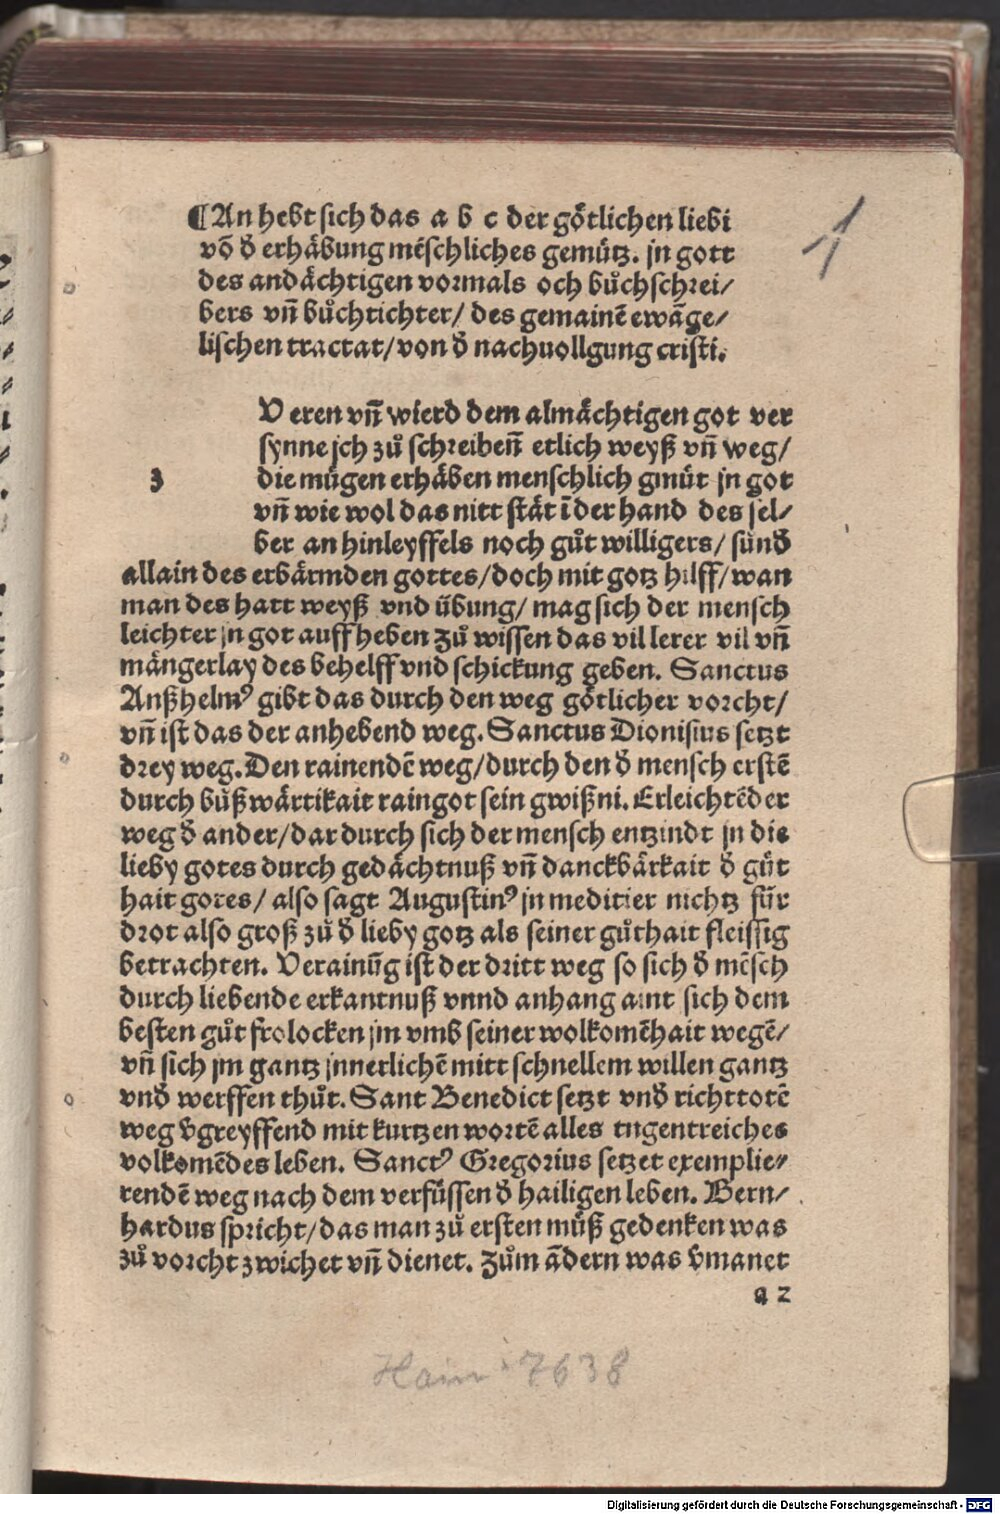 ¶An hebt sich das a b c der götlichen liebi
võ d̕ erhäbung mẽschliches gemütz. jn gott
des andächtigen vormals och bůchschrei/
bers vñ bůchtichter/ des gemainẽ ewãge/
lischen tractat/von d̕ nachuollgung cristi.
V eren vñ wierd dem almächtigen got ver
synne jch zů schreibeñ etlich weyß vñ weg/
die mügen erhäben menschlich gmüt jn got
vñ wie wol das nitt stät ĩ der hand des sel/
ber an hinleyffels noch gůt willigers/ sünd̕
allain des erbärmden gottes/doch mit gotz hilff/wan
man des hatt weyß vnd übung/ mag sich der mensch
leichter jn got auff heben Zů wissen das vil lerer vil vñ
mängerlay des behelff vnd schickung geben. Sanctus
Anßhelmꝰ gibt das durch den weg götlicher vorcht/
vñ ist das der anhebend weg. Sanctus Dionisius setzt
drey weg. Den rainendẽ weg/durch den d̕ mensch erstẽ
durch bůßwärtikait raingot sein gwißni. Erleichtẽder
weg d̕ ander/dar durch sich der mensch entzindt jn die
lieby gotes durch gedächtnuß vñ danckbärkait d̕ güt
hait gotes/ also sagt Augustinꝰ jn meditier nichtz für
drot also groß zů d̕ lieby gotz als seiner gůthait fleissig
betrachten. Verainũg ist der dritt weg so sich d̕ mẽsch
durch liebende erkantnuß vnnd anhang aint sich dem
besten gůt frolocken jm vmb seiner wolkomẽhait wegẽ/
vñ sich jm gantz jnnerlichẽ mitt schnellem willen gantz
vnd̕ werffen thůt. Sant Benedict setzt vnd̕ richttotẽ
weg v̕greyffend mit kurtzen wortẽ alles tugentreiches
volkomẽdes leben. Sanctꝰ Gregorius setzet exemplie/
rendẽ weg nach dem verfüssen d̕ hailigen leben. Bern/
hardus spricht/das man zů ersten müß gedenken was
zů vorcht zwichet vñ dienet. Zům ãdern was v̕manet
3
a 2
1
Hain 7638
Digitalisierung gefördert durch die Deutsche Forschungsgemeinschaft - DFG